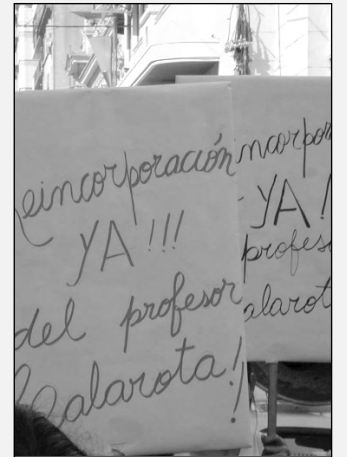 eincorporación
YA !!!
del profesor
alarota!
ncorpor
YA !
profes
alarot